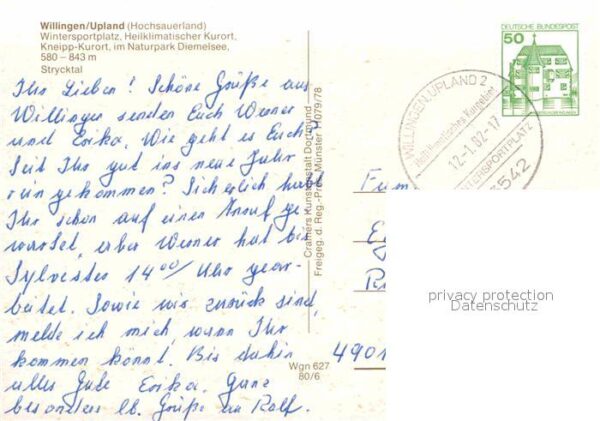 Willingen/Upland (Hochsauerland)
Wintersportplatz, Heilklimatischer Kurort,
Kneipp-Kurort, im Naturpark Diemelsee,
580 – 843 m
Strycktal
Ihr Lieben! Schöne Grüße aus
Willingen senden Euch Werner
und Erika. Wie geht es Euch
Seit Ihr gut ins neue Jahr
rein gekommen? Sicherlich habt
Ihr schon auf einen Anruf ge
wartet, aber Werner hat bis
Sylvester 14 00 Uhr gear-
beitet. Sowie wir zurück sind,
melde ich mich, wann Ihr
kommen könnt. Bis dahin
alles Gute Erika. Ganz
besonders lb. Grüße an Rolf.
Cramers Kunstanstalt Dortmund
Freigeg. d. Reg.-Präs. Münster 11079/78
Wgn 627
80/6
DEUTSCHE BUNDESPOST
50
WILLINGEN, UPLAND 2
Heilklimatisches Kurgebiet
12.-1.82.-17
WINTERSPORTPLATZ
3542
Fam
4901
privacy protection
Datenschutz